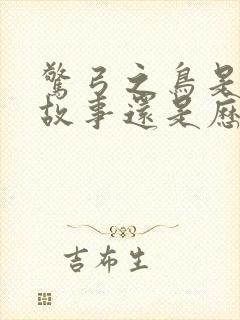 驚弓之鳥是
故事還是歷
吉布生